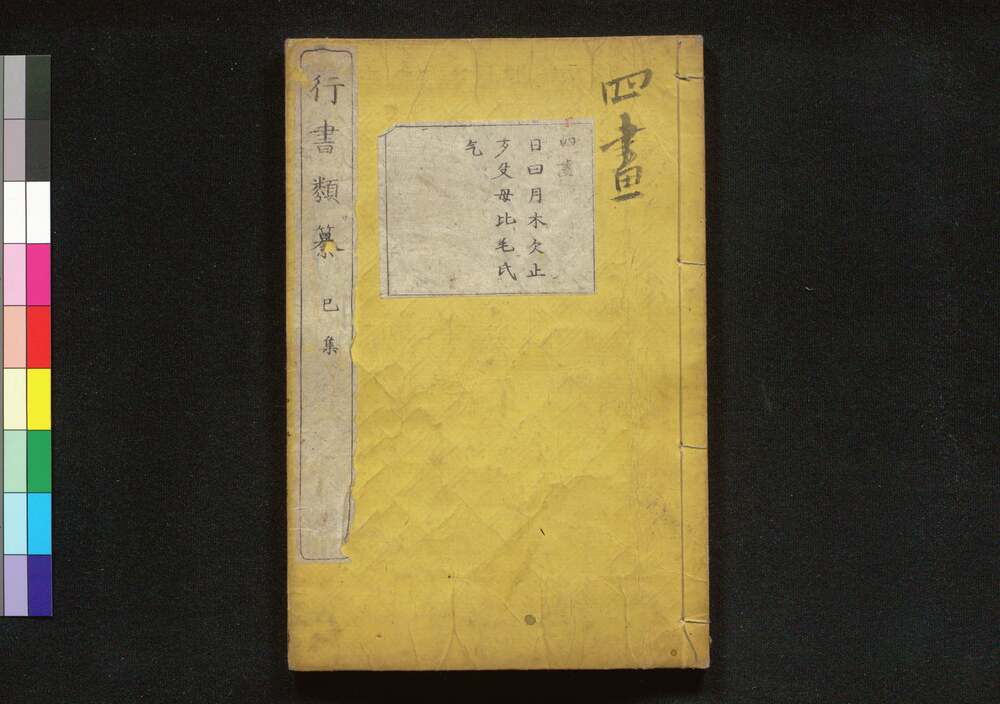 四畫
四畫
日曰月木欠止
歹殳母比毛氏
气
行書類纂 巳集